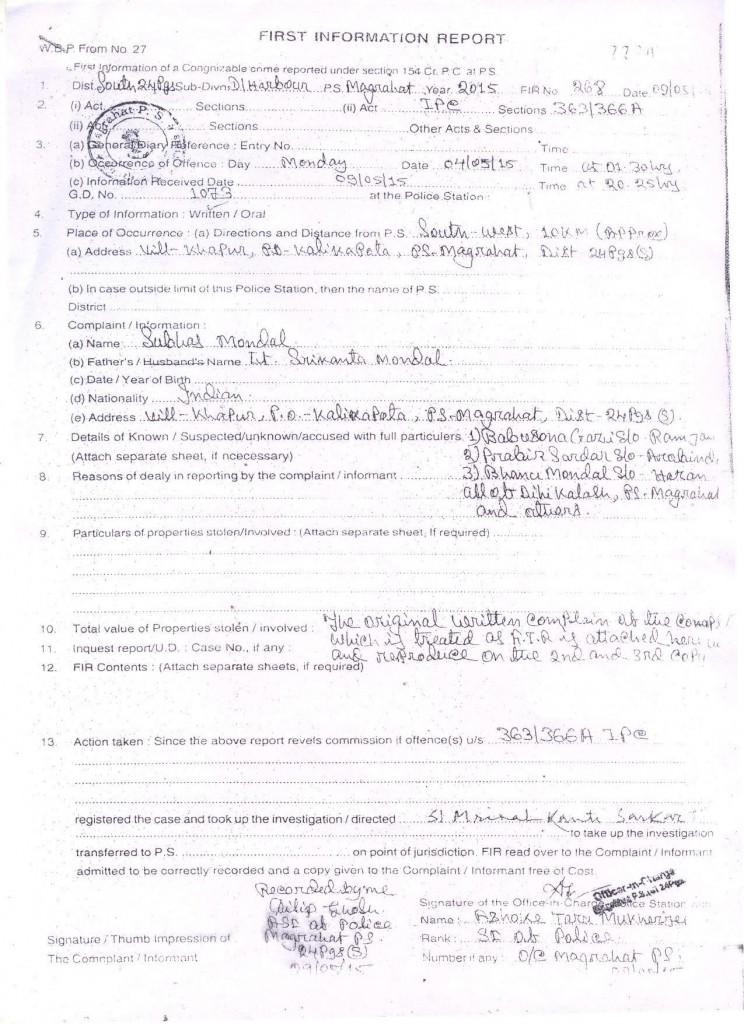 FIRST INFORMATION REPORT
W.B.P. From No. 27
First Information of a Congnizable crime reported under section 154 Cr. P.C. at P.S.
1. Dist. South 24 Pgs Sub-Divn. D/Harbour P.S. Magrahat Year 2015 FIR No 268 Date 09/05/
2. (i) Act Sections (ii) Act IPC Sections 363/366A
(ii) Sections Other Acts & Sections
3. (a) General Diary Reference : Entry No. Time
(b) Occorrence of Offence : Day Monday Date 04/05/15 Time at 01.30 hrs
(c) Information Received Date 09/05/15 Time at 20.25 hrs
G.D. No. 1073 at the Police Station :
4. Type of Information : Written / Oral
5. Place of Occurrence : (a) Directions and Distance from P.S. South-West, 10 KM (Approx)
(a) Address Vill- Khapur, P.O- Kalikapota, PS- Magrahat, Dist 24 Pgs(S)
(b) In case outside limit of this Police Station, then the name of P.S.
District
6. Complaint / Information :
(a) Name Subhas Mondal
(b) Father's / Husband's Name Lt. Srikanta Mondal
(c) Date / Year of Birth
(d) Nationality Indian
(e) Address Vill- Khapur, P.O.- Kalikapota, PS- Magrahat, Dist- 24 Pgs (S).
7. Details of Known / Suspected/unknown/accused with full particulers 1) Babusona Gazi S/o- Ramjan
(Attach separate sheet, if ncecessary) 2) Prabir Sardar S/o-
8. Reasons of dealy in reporting by the complaint / informant 3) Mondal S/o- Haran
all of Dihikalash, PS- Magrahat
and others.
9. Particulars of properties stolen/Involved : (Attach separate sheet, If required)
10. Total value of Properties stolen / involved : The original written complain of the
11. Inquest report/U.D. : Case No., if any : which is treated as F.I.R is attached here
12. FIR Contents : (Attach separate sheets, if required) and reproduce on the 2nd and 3rd
13. Action taken : Since the above report revels commission if offence(s) u/s 363/366A IPC
registered the case and took up the investigation / directed SI Mrinal Kanti Sarkar
to take up the investigation
transferred to P.S. on point of jurisdiction. FIR read over to the Complaint / Informant
admitted to be correctly recorded and a copy given to the Complaint / Informant free of Cost.
Recorded by me
Officer-in-Charge
Signature of the Office-in-Charge Station
Dilip Ghosh
Name : Ashoke Taru Mukherjee
ASI of Police
Signature / Thumb Impression of Magrahat PS. Rank : SI of Police
The Comnplant / Informant 24 Pgs (S) Number if any : O/C Magrahat PS
09/05/15